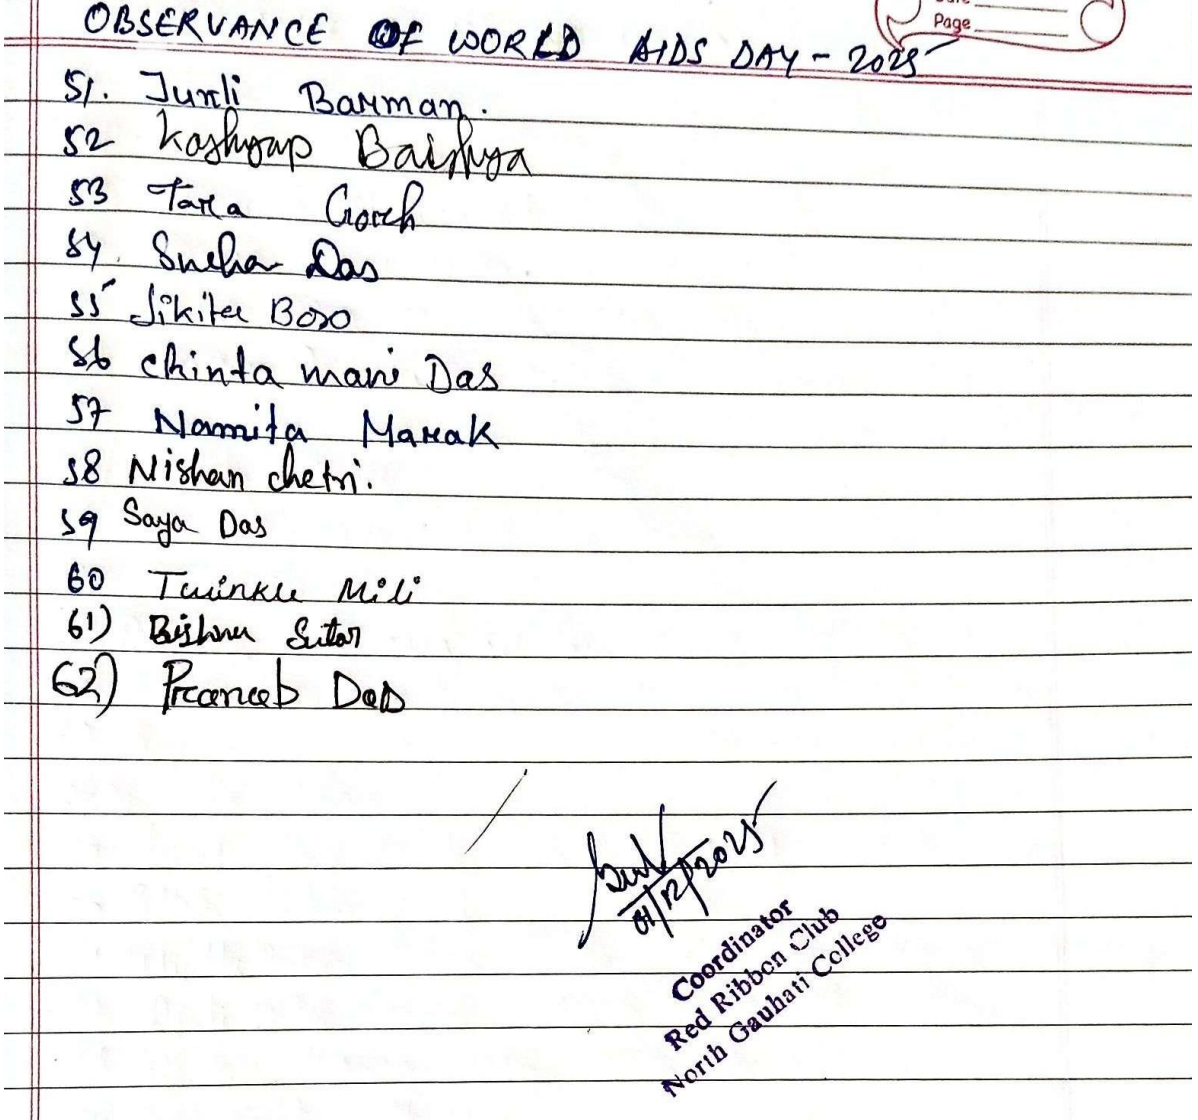 Page
OBSERVANCE OF WORLD AIDS DAY - 2025
51. Junli Barman.
52 Kashyap Baishya
53 Tara Gorh
54. Sneha Das
55 Jikita Boro
56 Chinta mani Das
57 Namita Marak
58 Nishan chetri.
59 Saya Das
60 Twinkle Mili
61) Bishnu Sutar
62) Pranab Das
01/12/2025
Coordinator
Red Ribbon Club
North Gauhati College